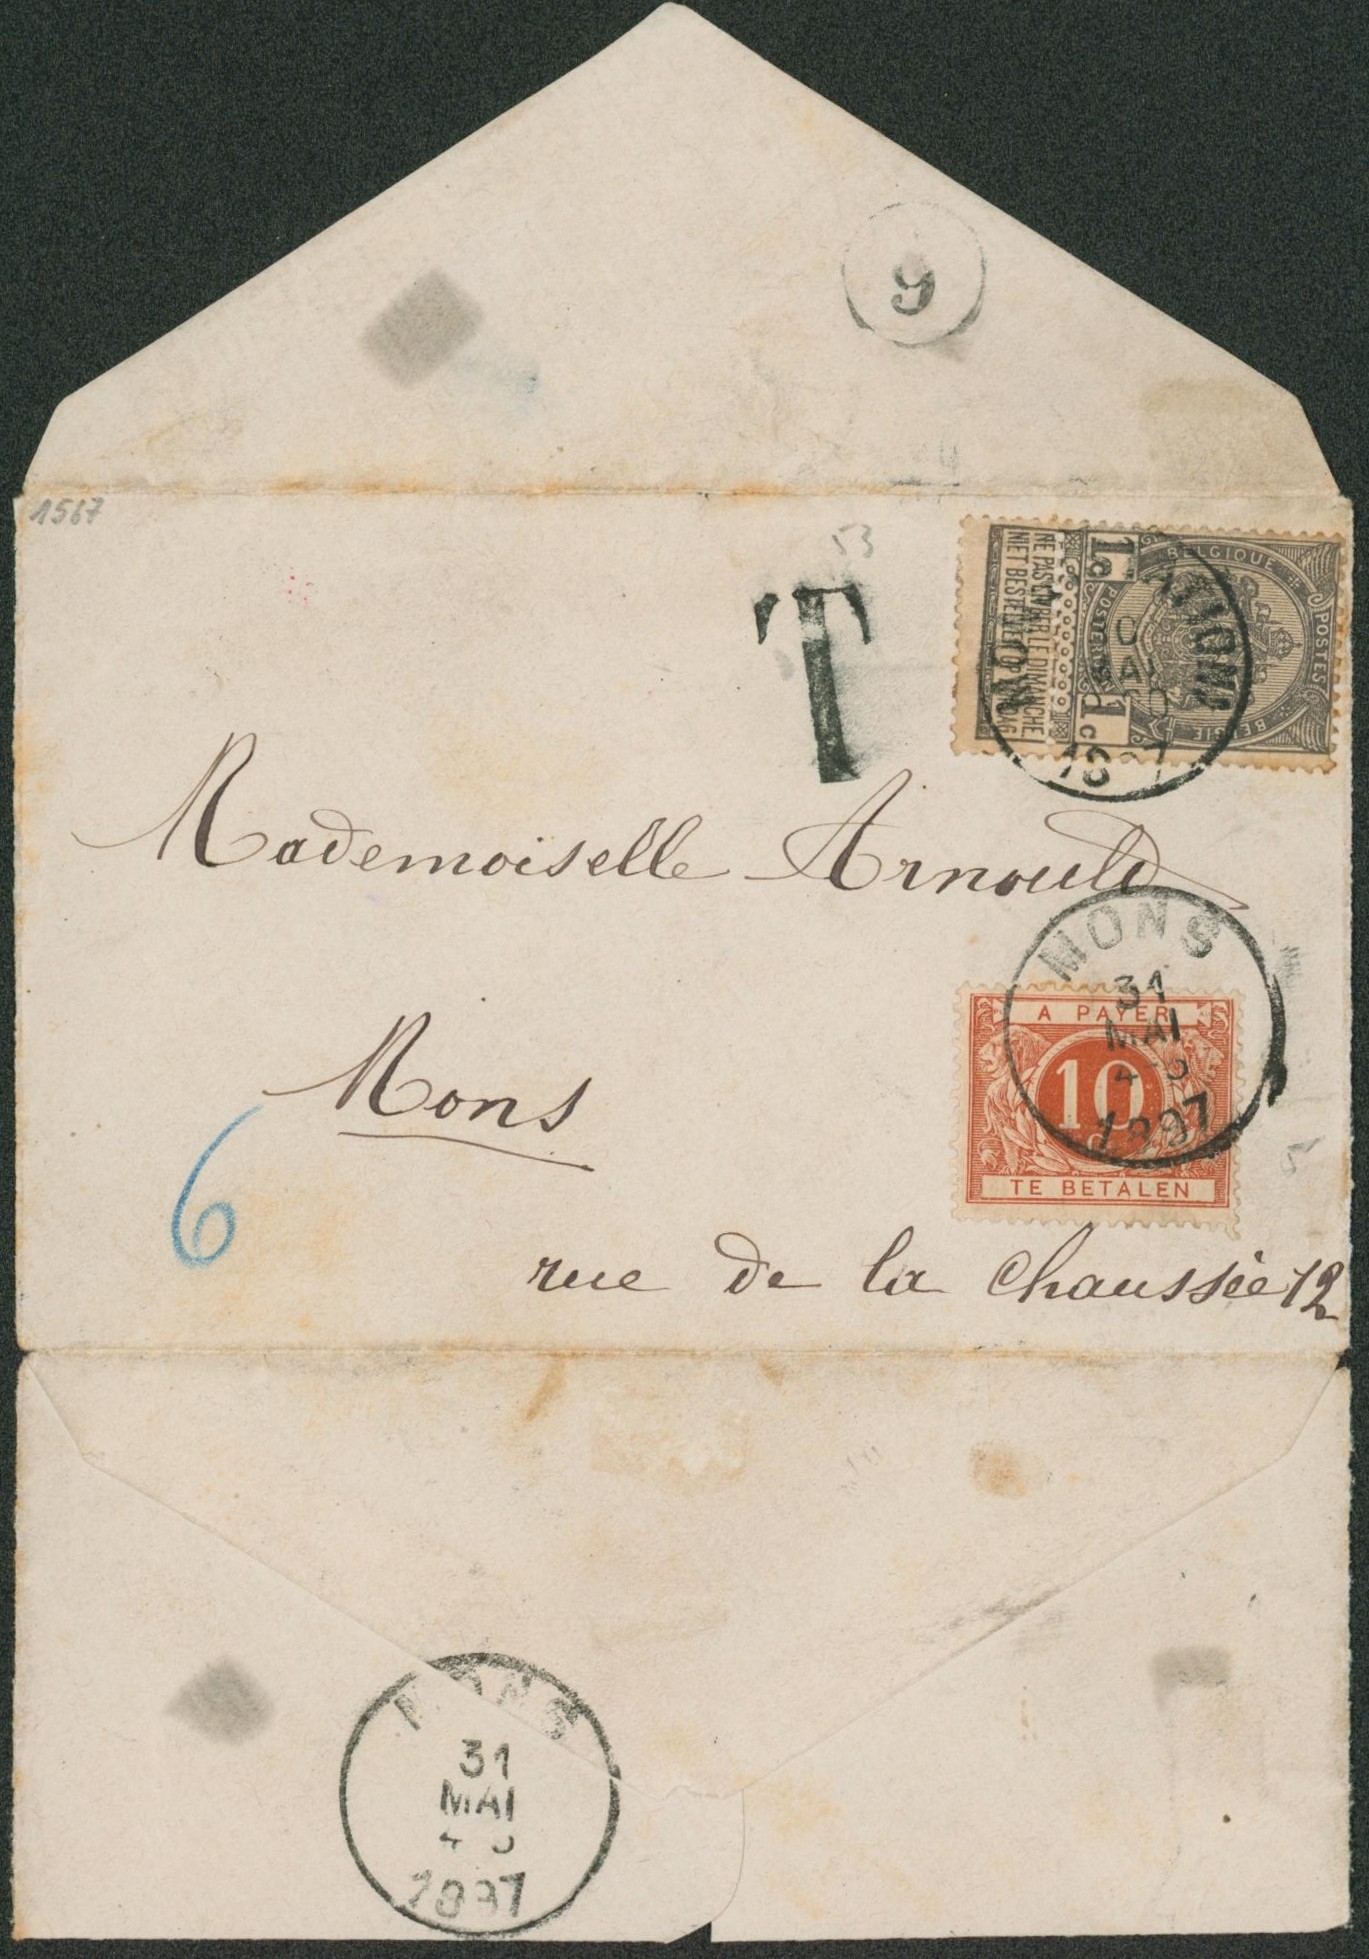 9
1567
53
T
BELGIQUE
POSTES
POSTERIJEN
BELGIE
1c
1c
NE PAS LIVRER LE DIMANCHE
NIET BESTELLEN OP ZONDAG
MONS
(STATION)
MAI
1897
Mademoiselle Arnould
MONS
31
MAI
1897
Mons
A PAYER
10
c
TE BETALEN
6
5
rue de la Chaussée 12
MONS
31
MAI
1897